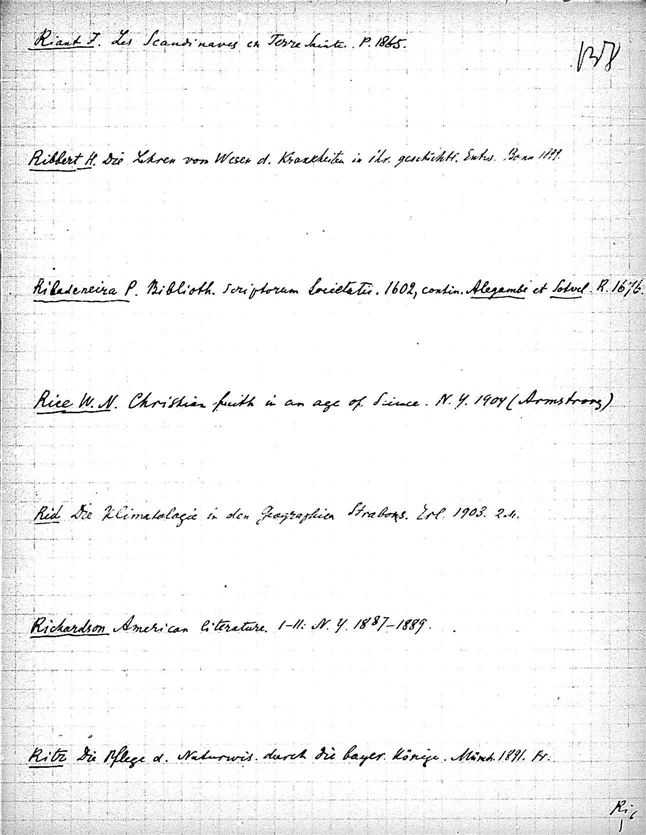 Riant J. Les Scandinaves en Terre Sainte. P. 1865.
Ribbert H. Die Lehren vom Wesen d. Krankheiten in ihr. geschichtl. Entw. Bonn 1899.
Ribadeneira P. Biblioth. Scriptorum Societatis. 1602, contin. Alegambe et Sotvel. R. 1676.
Rice W. N. Christian faith in an age of Science. N. Y. 1904 (Armstrong)
Rid Die Klimatologie in den Geographien Strabons. Erl. 1903.
Richardson American literature. I-II: N. Y. 1887-1889.
Ritz Die Pflege d. Naturwis. durch die bayer. Könige. Münch. 1891. Pr.
Ri